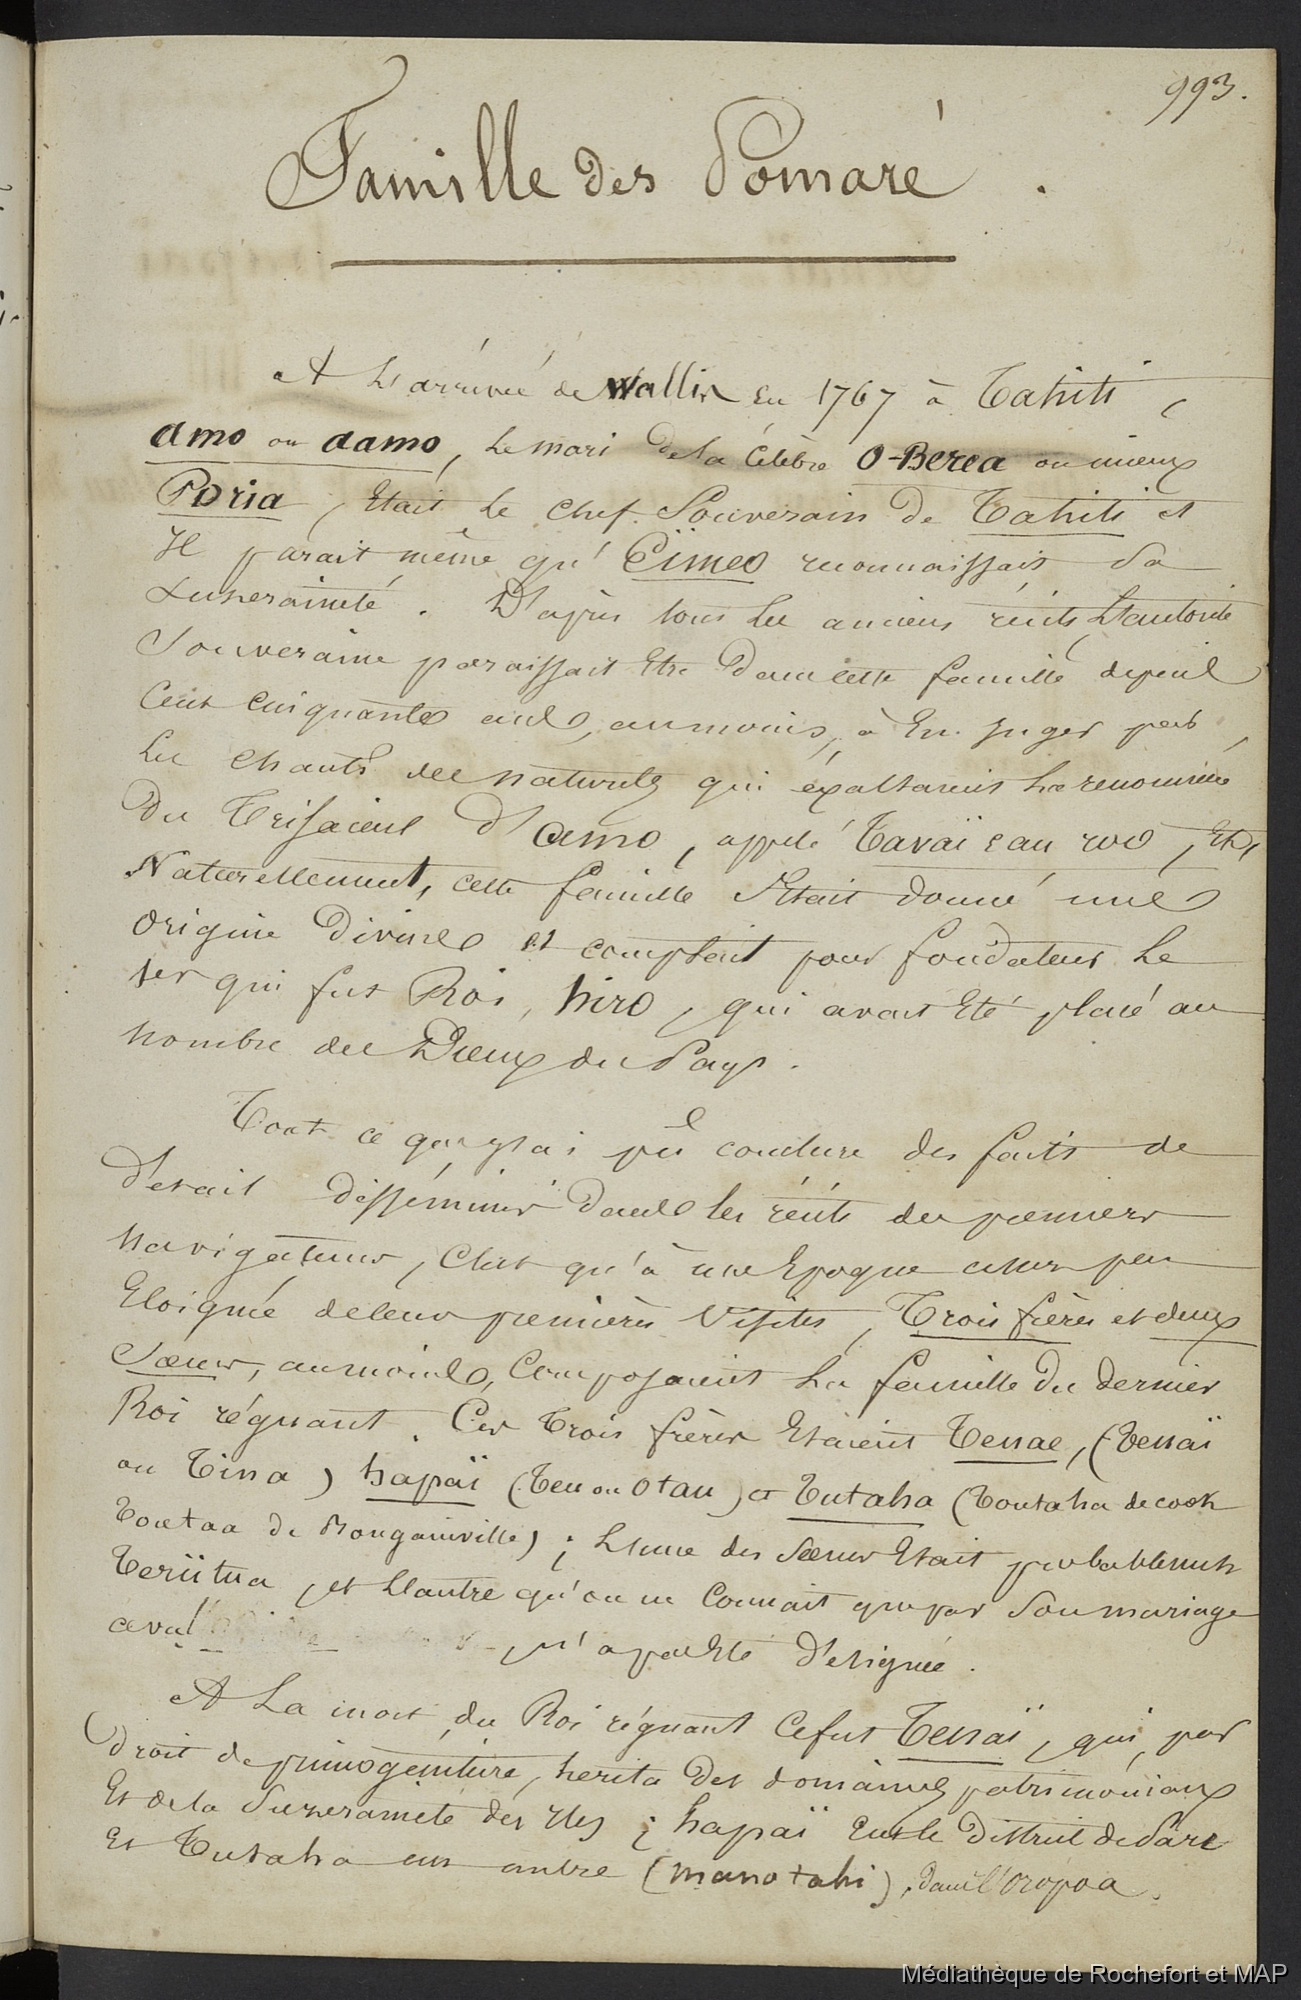 993.
Famille des Pomaré.
A l'arrivée de Wallis en 1767 à Tahiti,
amo ou aamo, le mari de la célèbre O-Berea ou mieux
Poria, était le chef Souverain de Tahiti et
Il parait même qu'Eïmeo reconnaissait sa
Suzeraineté. D'après tous les anciens récits, l'autorité
Souveraine paraissait être dans cette famille depuis
Cent cinquante ans, au moins, à en juger par
les chants des naturels qui exaltaient la renommée
du Trisaïeul d'amo, appelé Tavaï eau roo, Et,
Naturellement, cette famille s'était donné une
origine divine et comptait pour fondateur le
1er qui fut Roi, hiro, qui avait été placé au
nombre des Dieux du Pays.
Tout ce que j'ai pu conclure des faits de
détail disséminés dans les récits des premiers
navigateurs, C'est qu'à une Epoque assez peu
Eloignée de leurs premières visites, Trois frères et deux
Sœurs, au moins, Composaient la famille du dernier
Roi régnant. Ces trois frères étaient Tenae, (Tenaï
ou Tina) hapaï (Teu ou Otau) et Tutaha (Toutaha de cook
Toutaa de Bougainville); L'une des sœurs était probablement
Teriitua, et l'autre qu'on ne connait que par son mariage
avec n'a pas été désignée.
A La mort du Roi régnant ce fut Tenaï, qui, par
droit de primogéniture, hérita des domaines patrimoniaux
Et de la Suzeraineté des Iles; hapaï eut le district de Pare
Et Tutaha un autre (manotahi), dans l'oropoa.
Médiathèque de Rochefort et MAP